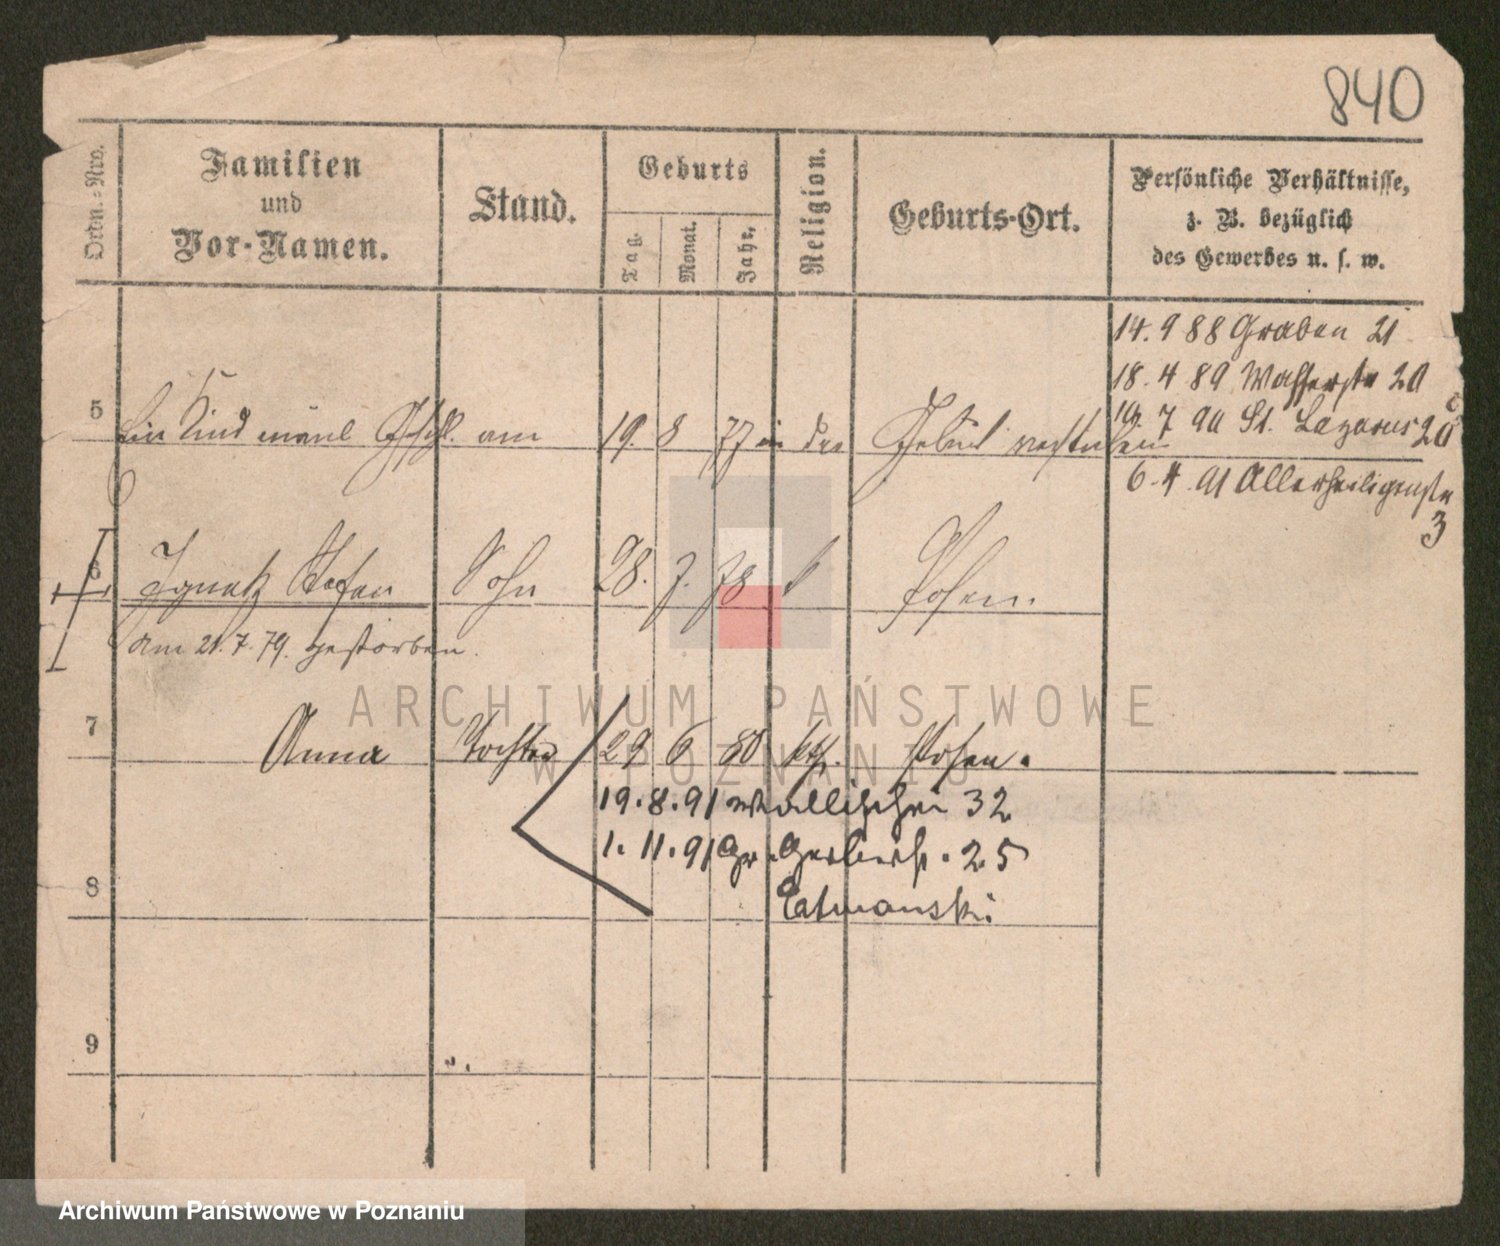 840
Ordn.-Nro.
Familien
und
Vor-Namen.
Stand.
Geburts
Tag.
Monat.
Jahr.
Religion.
Geburts-Ort.
Persönliche Verhältnisse,
z. B. bezüglich
des Gewerbes u. s. w.
14. 9 88 Graben 21
18. 4 89 Wasserstr 20
7 90 St. Lazarus 20
6. 4. 91 Allerheiligenstr
3
5 Ein Kind männl Gschl. am 19. 8 77 in der Geburt verstorben
6 Ignatz Stefan Sohn 28. 7. 78 k Posen.
Am 21. 7. 79. gestorben.
7 Anna Tochter 29 6 80 kth. Posen.
19. 8. 91 Wallischei 32
1. 11. 91 Gr. Gerberstr. 25
8
9
ARCHIWUM PAŃSTWOWE
W POZNANIU
Archiwum Państwowe w Poznaniu